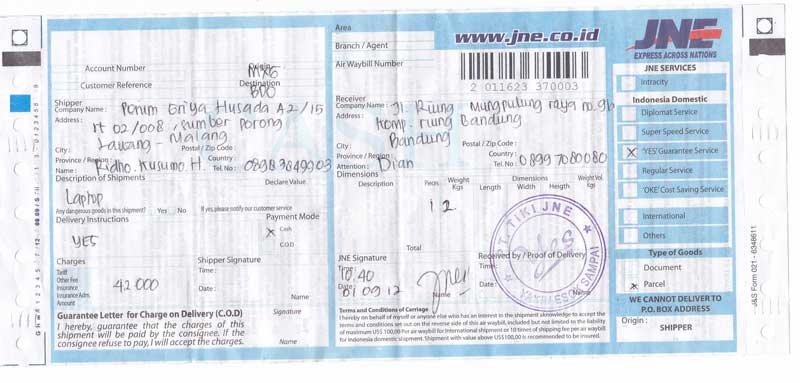 www.jne.co.id
JNE
EXPRESS ACROSS NATIONS
Area
Branch / Agent
Air Waybill Number
2 011623 370003
Account Number
Customer Reference
Origin
MXG
Destination
BDO
Shipper
Company Name : Perum Griya Husada A2/15
Address : rt 02/008, sumber porong
Lawang - Malang
City : Postal / Zip Code :
Province / Region : Country :
Name : Ridho. Kusumo H. Tel. No : 08983849903
Description of Shipments Declare Value
Laptop
Any dangerous goods in this shipment? Yes No If yes, please notify our customer service
Delivery Instructions Payment Mode
YES
x Cash
C.O.D
Charges Shipper Signature
Tariff
Other Fee
Insurance
Insurance Adm.
Amount
42000
Time :
Date :
Name
Guarantee Letter for Charge on Delivery (C.O.D) Signature
I hereby, guarantee that the charges of this
shipment will be paid by the consignee. If the
consignee refuse to pay, I will accept the charges.
Name
Receiver
Company Name : Jl. Riung Mungpulung raya no.9b
Address : Komp. riung Bandung
Bandung
City : Postal / Zip Code :
Province / Region : Country :
Attention : Dian Tel. No : 08997080080
Dimensions
Description Pieces Weight Kgs Dimensions Length Width Heigth Weight Vol. Kgs
1 2
Total
JNE Signature Received by / Proof of Delivery
Time : 10.40 Time :
Date : 01.09.12 Date :
Name Name
PT. TIKI JNE
Terms and Conditions of Carriage
I hereby on behalf of myself or anyone else who has an interest in the shipment aknowledge to accept the
terms and conditions set out on the reverse side of this air waybill, included but not limited to the liability
of maximum US$ 100,00 Per air waybill for International shipment or 10 times of shipping fee per air waybill
for Indonesia domestic shipment. Shipment with value above US$100,00 is recommended to be insured.
JNE SERVICES
Intracity
Indonesia Domestic
Diplomat Service
Super Speed Service
x 'YES' Guarantee Service
Regular Service
'OKE' Cost Saving Service
International
Others
Type of Goods
Document
x Parcel
WE CANNOT DELIVER TO
P.O. BOX ADDRESS
Origin :
SHIPPER
J&S Form 021 - 6348611